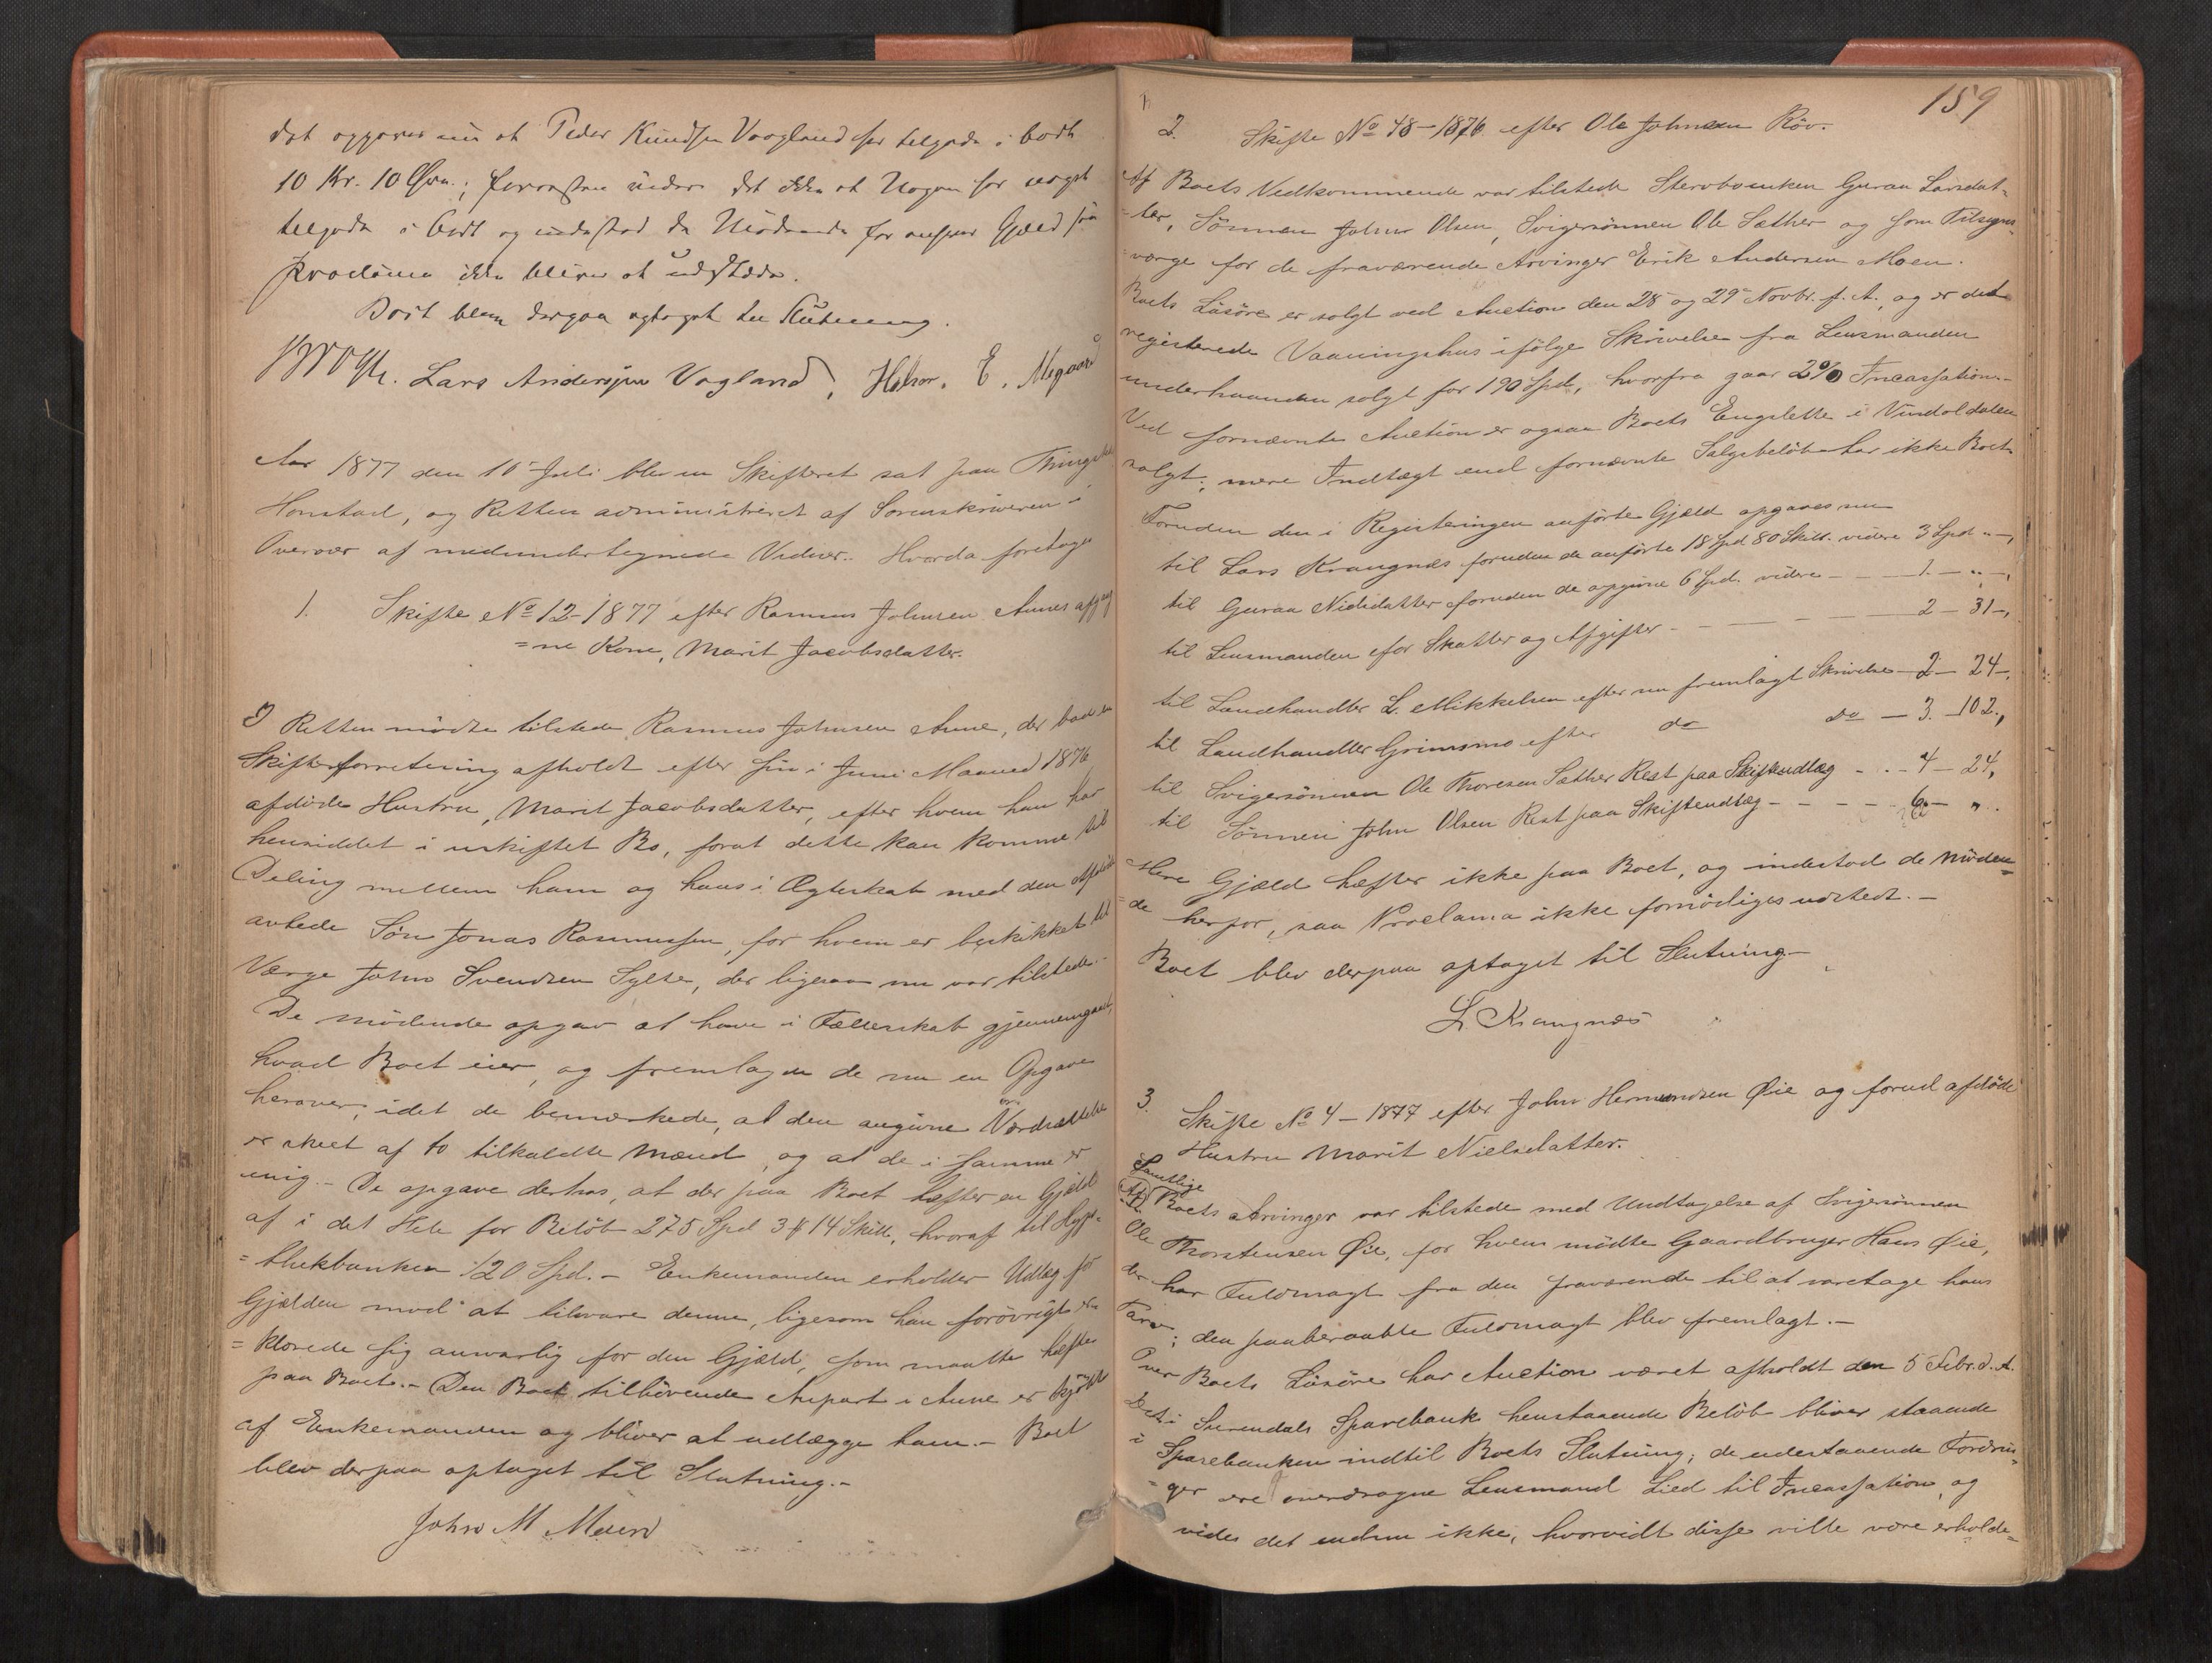 det opgives nu at Peder Knudsen Vaagland har tilgode i boet
10 Kr. 10 Øre.; forresten vides det ikke at Nogen har noget
tilgode i Boet og indestod de Mødende for anført Gjæld saa
proclama ikke bliver at udstæde.
Boet blev derpaa optaget til Slutning.
Lars Andersen Vagland, Halvor. E. Megaard
Aar 1877 den 10de Juli blev en Skifteret sat paa
Honstad, og Retten administreret af Sorenskriveren i
Overvær af medundertegnede Vidner. Hvorda foretoges
1. Skifte No 12-1877 efter Rasmus Johnsen Aunes afgang
=ne Kone, Marit Jacobsdatter.
I Retten mødte tilstede Rasmus Johnsen Aune, der bad en
Skifteforretning afholdt efter sin i Juni Maaned 1876
afdøde Hustru, Marit Jacobsdatter, efter hvem han har
hensiddet i uskiftet Bo, forat dette kan komme til
Deling mellem ham og hans i Ægteskab med den Afdøde
avlede Søn Jonas Rasmussen, for hvem er beskikket til
Værge John Svendsen Sylte, der ligesaa nu var tilstede.-
De mødende opgav at have i Fællesskab gjennemgaaet,
hvad Boet eier, og fremlagde de nu en Opgave
herover, idet de bemærkede, at den angivne Værdsættelse
er skeet af to tilkaldte Mænd, og at de i samme er
enig.- De opgave derhos, at der paa Boet hæfter en Gjæld
af i det Hele for Beløb 275 Spd 3 ₰ 14 Skill, hvoraf til Hypo-
=thekbanken 120 Spd.- Enkemanden erholder Udlæg for
Gjælden mod at tilsvare denne, ligesom han forøvrigt er-
=klærede sig ansvarlig for den Gjæld, som maatte hæfte
paa Boet.- Den Boet tilhørende Anpart i Aune er kjøbt
af Enkemanden og bliver at udlægge ham.- Boet
blev derpaa optaget til Slutning.-
John M Moen
159
2. Skifte No 48-1876 efter Ole Johnsen Röv.
Af Boets Vedkommende var tilstede Stervboenken Guraa Larsdat-
-ter, Sönnen John Olsen, Svigersönnen Ole Sæther og som Tilsyns-
værge for de fraværende Arvinger Erik Andersen Moen.
Boets Lösöre er solgt ved Auction den 28 og 29 Novbr. f. A., og er det
registerede Vaaningshus ifölge Skrivelse fra Lensmanden
underhaanden solgt for 190 Spd, hvorfra gaar 2% Incassation.-
Ved fornævnte Auction er ogsaa Boets Engslette i Vindöldalen
solgt; mere Indtægt end fornævnte Salgsbeløb har ikke Boet.
Foruden den i Registeringen anførte Gjæld opgaves nu
til Lars Krangnæs foruden de anførte 18 Spd 80 Skill. videre 3 Spd " -,
til Guraa Nilsdatter foruden de opgivne 6 Spd. videre - - - 1 - " -,
til Lensmanden for Skatter og Afgifter - - - - - 2 - 31 -,
til Landhandler L. Mikkelsen efter nu fremlagt Skrivelse - 2 - 24 -,
til Landhandler Grimsmo efter do do - 3. - 102.,
til Svigersönnen Ole Thoresen Sæther Rest paa Skifteudlæg - . - 4 - 24,
til Sönnen John Olsen Rest paa Skifteudlæg - - - - - 6 - " .
Mere Gjæld hæfter ikke paa Boet, og indestod de Møden=
=de herfor, saa Proclama ikke fornødiges udstedt.-
Boet blev derpaa optaget til Slutning.-
L. Krangnæs
3. Skifte No 4 - 1877 efter John Hermundsen Øie og forud afdøde
Hustru Marit Nielsdatter.
Samtlige
Af Boets Arvinger var tilstede med Undtagelse af Svigersönnen
Ole Thorstensen Øie, for hvem mödte Gaardbruger Hans Øie,
der har Fuldmagt fra den fraværende til at varetage hans
Tarv; den paaberaabte Fuldmagt blev fremlagt.-
Over Boets Lösöre har Auction været afholdt den 5 Febr. d. A.
Det i Surendals Sparebank henstaaende Beløb bliver staaende
i Sparebanken indtil Boets Slutning; de udestaaende Fordrin-
=ger ere overdragne Lensmand Lied til Incassation, og
vides det endnu ikke, hvorvidt disse ville være erholde=